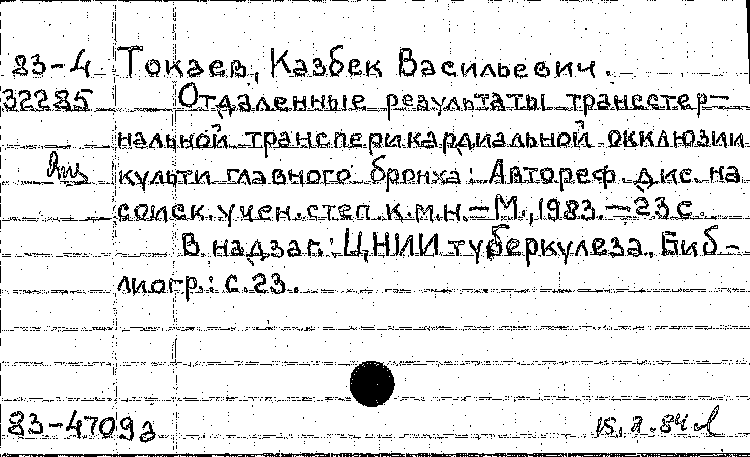 83-4 Токаев, Казбек Васильевич.
32285 Отдаленные результаты трансстер-
нальной трансперикардиальной окклюзии
культи главного бронха: Автореф. дис. на
соиск. учен. степ. к.м.н. – М., 1983. – 23 с.
В надзаг.: ЦНИИ туберкулеза. Биб-
лиогр.: с. 23.
83-4709а